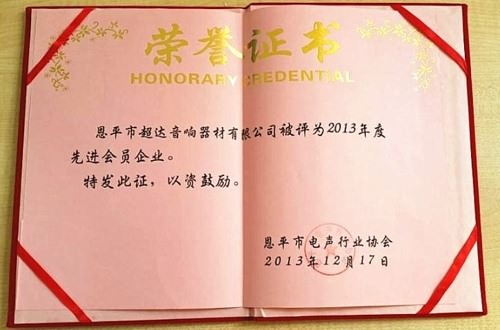 荣誉证书
HONORARY CREDENTIAL
恩平市超达音响器材有限公司被评为2013年度
先进会员企业。
特发此证，以资鼓励。
恩平市电声行业协会
2013年12月17日